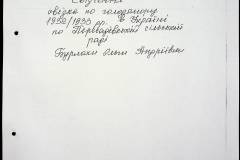 Свідчення
очевидця по голодомору
1932/1933 рр. в Україні
по                сільській
раді
Бурлаки Ольги Андріївни